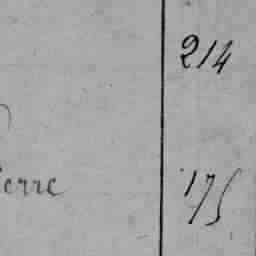 214
ierre 175